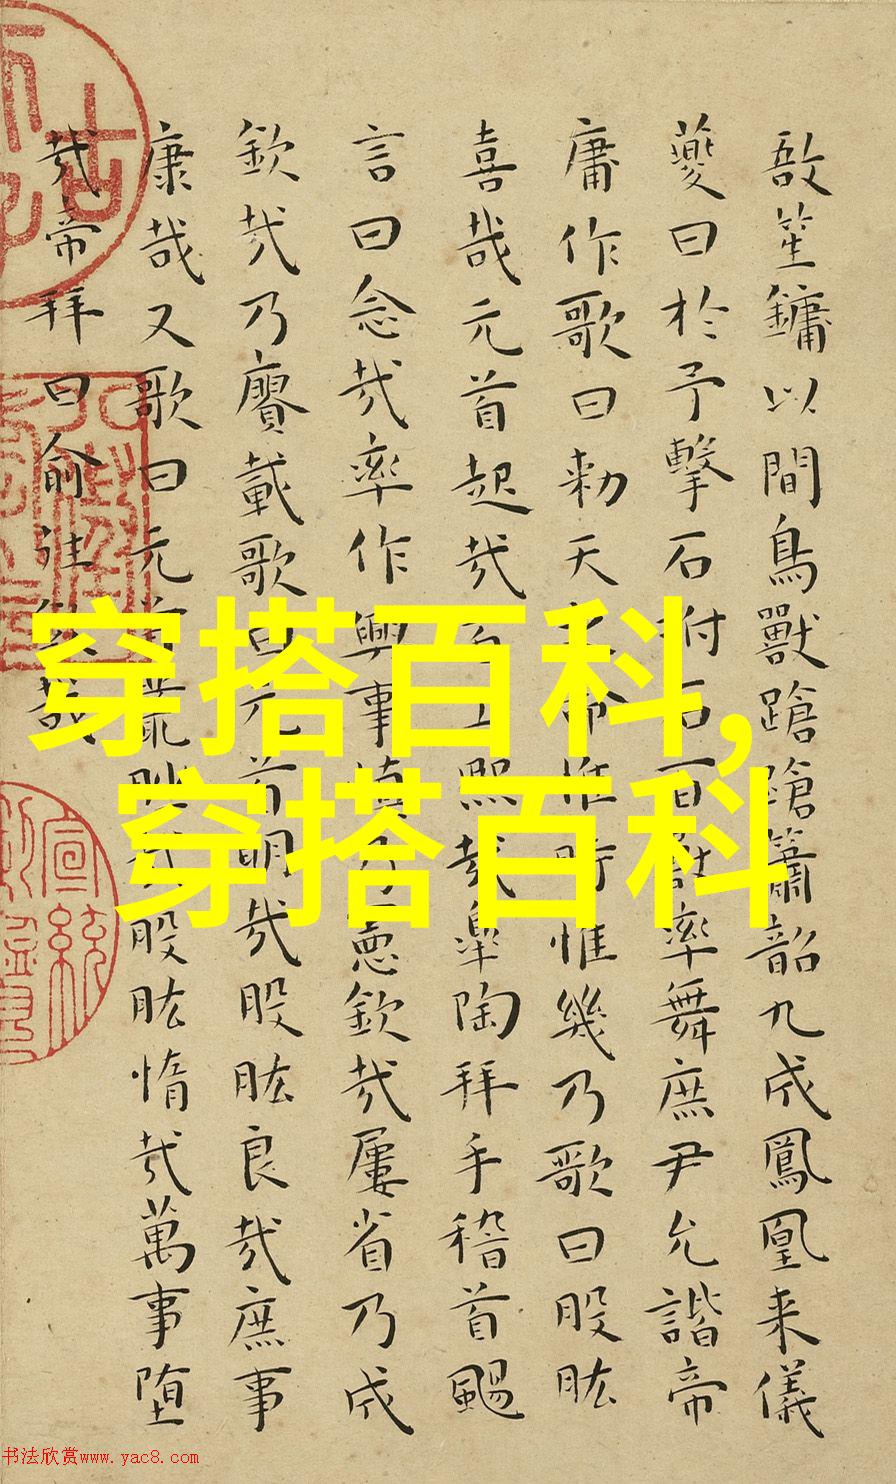 敔笙鏞以間鳥獸蹌蹌簫韶九成鳳凰来儀
夔曰於予擊石拊石百獸率舞庶尹允諧帝
庸作歌曰勑天之命惟時惟幾乃歌曰股肱
喜哉元首起哉百工熙哉皋陶拜手稽首颺
言曰念哉率作興事慎乃憲欽哉屢省乃成
欽哉乃賡載歌曰元首明哉股肱良哉庶事
康哉又歌曰元首叢脞哉股肱惰哉萬事堕
哉帝拜曰俞往欽哉
穿搭百科,
穿搭百科
宣統
书法欣赏www.yac8.com